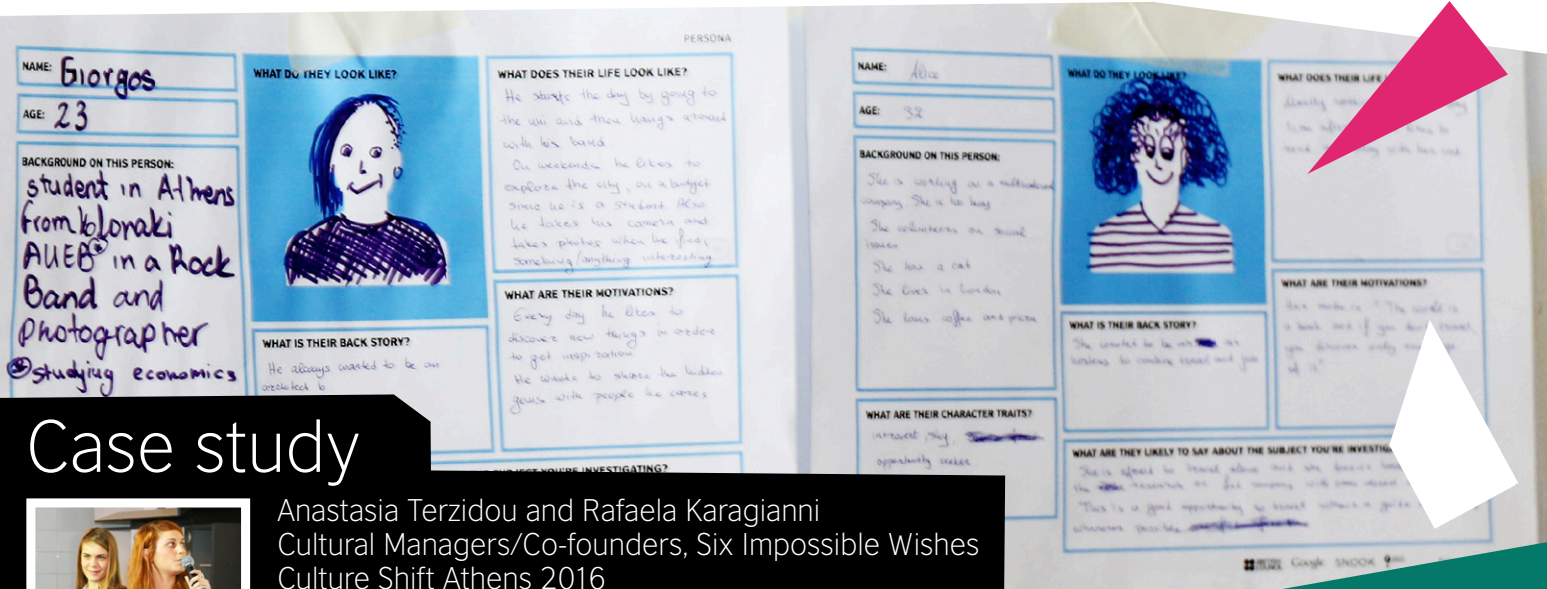 PERSONA
NAME: Giorgos
AGE: 23
BACKGROUND ON THIS PERSON:
student in Athens
from kolonaki
AUEB in a Rock
Band and
Photographer
studying economics
WHAT DO THEY LOOK LIKE?
WHAT IS THEIR BACK STORY?
He always wanted to be an
architect b
WHAT DOES THEIR LIFE LOOK LIKE?
He starts the day by going to
the uni and then hangs around
with his band
On weekends he likes to
explore the city, on a budget
since he is a student. Also
he takes his camera and
takes photos when he finds
something/anything interesting
WHAT ARE THEIR MOTIVATIONS?
Every day he likes to
discover new things in order
to get inspiration
He wants to share the hidden
gems with people he cares
SUBJECT YOU'RE INVESTIGATING?
NAME: Alice
AGE: 32
BACKGROUND ON THIS PERSON:
She is working on a
company She is too busy
She volunteers on social
issues
She has a cat
She lives in London
She loves coffee and pizza
WHAT ARE THEIR CHARACTER TRAITS?
introvert, shy,
opportunity seeker
WHAT DO THEY LOOK LIKE?
WHAT IS THEIR BACK STORY?
She wanted to be an
hostess to combine travel and job
WHAT DOES THEIR LIFE
WHAT ARE THEIR MOTIVATIONS?
Her motto is "The world is
a book and if you don't travel
you discover only one page
of it"
WHAT ARE THEY LIKELY TO SAY ABOUT THE SUBJECT YOU'RE INVESTIG
She is afraid to travel alone and she
the research
This is a good opportunity to travel without a guide
whenever possible
BRITISH COUNCIL Google SNOOK
Case study
Anastasia Terzidou and Rafaela Karagianni
Cultural Managers/Co-founders, Six Impossible Wishes
Culture Shift Athens 2016